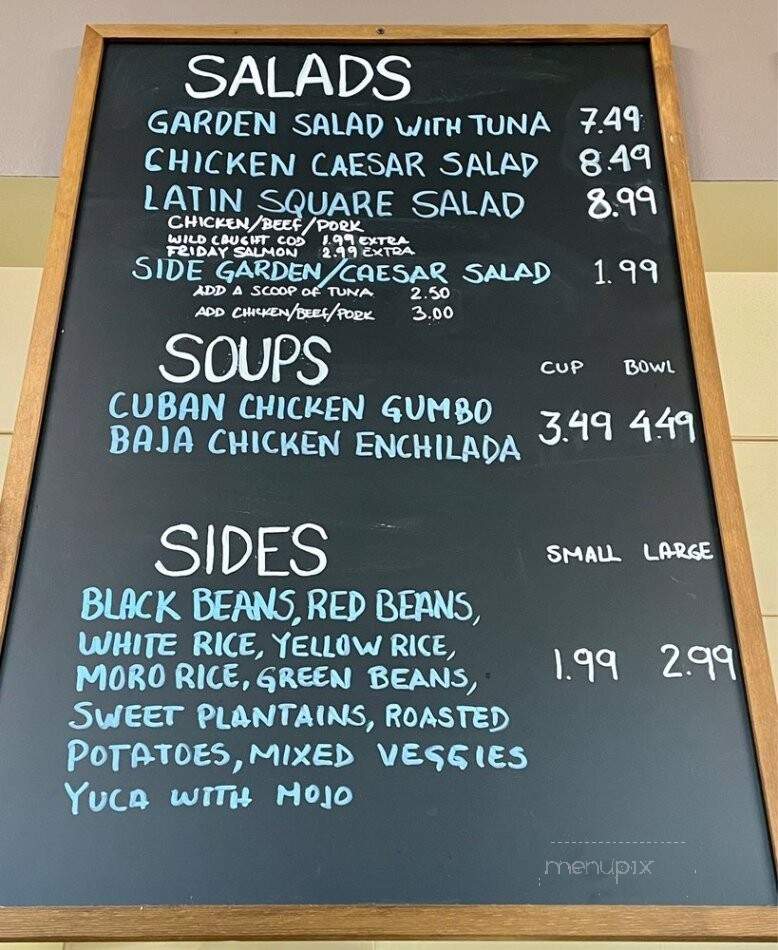 SALADS
GARDEN SALAD WITH TUNA 7.49
CHICKEN CAESAR SALAD 8.49
LATIN SQUARE SALAD 8.99
CHICKEN/BEEF/PORK
WILD CAUGHT COD 1.99 EXTRA
FRIDAY SALMON 2.99 EXTRA
SIDE GARDEN/CAESAR SALAD 1.99
ADD A SCOOP OF TUNA 2.50
ADD CHICKEN/BEEF/PORK 3.00
SOUPS CUP BOWL
CUBAN CHICKEN GUMBO
3.49 4.49
BAJA CHICKEN ENCHILADA
SIDES SMALL LARGE
BLACK BEANS, RED BEANS,
WHITE RICE, YELLOW RICE,
MORO RICE, GREEN BEANS, 1.99 2.99
SWEET PLANTAINS, ROASTED
POTATOES, MIXED VEGGIES
YUCA WITH MOJO
menupix